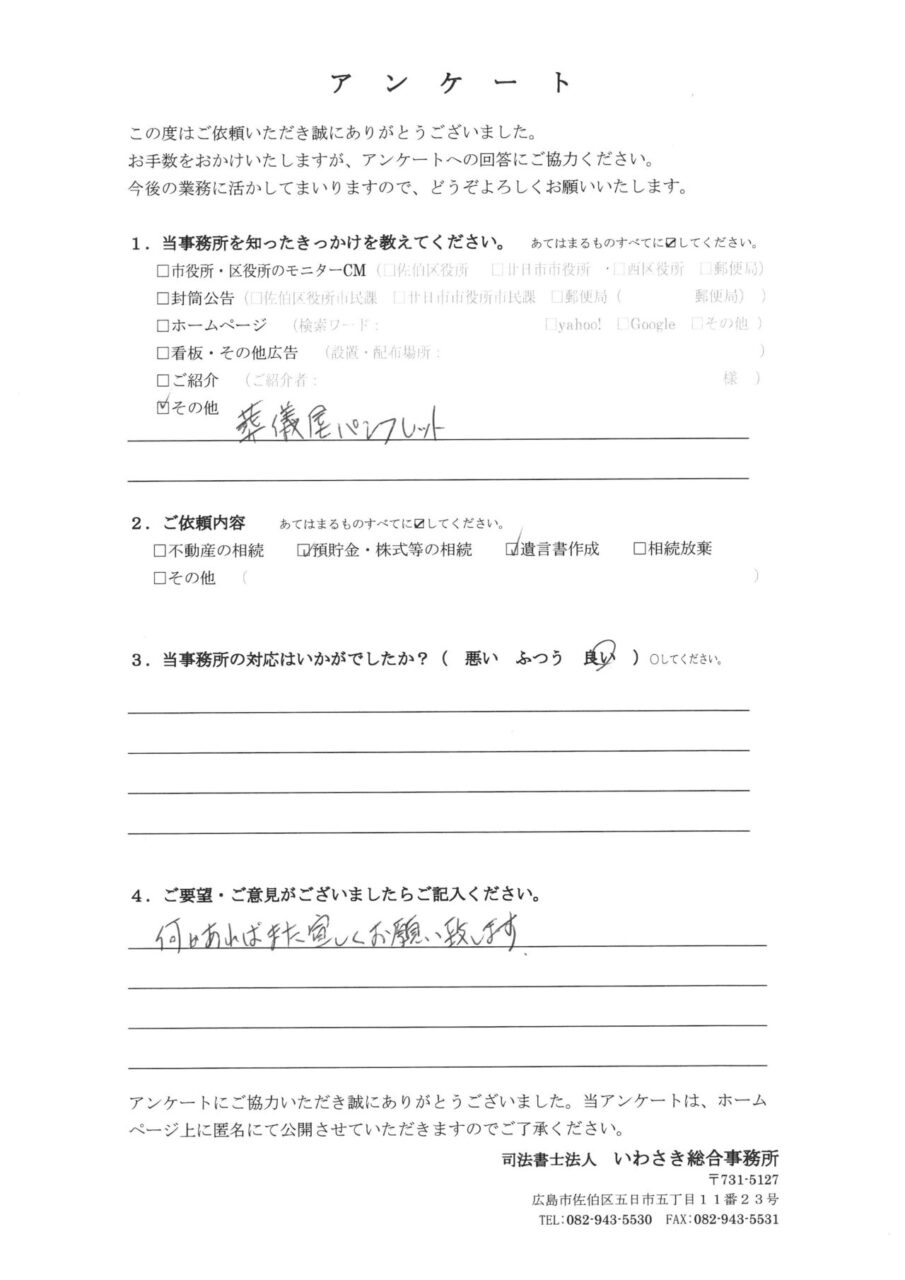 アンケート
この度はご依頼いただき誠にありがとうございました。
お手数をおかけいたしますが、アンケートへの回答にご協力ください。
今後の業務に活かしてまいりますので、どうぞよろしくお願いいたします。
1．当事務所を知ったきっかけを教えてください。 あてはまるものすべてに☑してください。
□市役所・区役所のモニターCM（□佐伯区役所 □廿日市市役所 ・□西区役所 □郵便局）
□封筒公告（□佐伯区役所市民課 □廿日市市役所市民課 □郵便局（ 郵便局））
□ホームページ （検索ワード： □yahoo! □Google □その他）
□看板・その他広告 （設置・配布場所： ）
□ご紹介 （ご紹介者： 様 ）
☑その他 葬儀屋パンフレット
2．ご依頼内容 あてはまるものすべてに☑してください。
□不動産の相続 ☑預貯金・株式等の相続 ☑遺言書作成 □相続放棄
□その他 （ ）
3．当事務所の対応はいかがでしたか？（ 悪い ふつう 良い ）○してください。
4．ご要望・ご意見がございましたらご記入ください。
何かあればまた宜しくお願い致します.
アンケートにご協力いただき誠にありがとうございました。当アンケートは、ホーム
ページ上に匿名にて公開させていただきますのでご了承ください。
司法書士法人 いわさき総合事務所
〒731-5127
広島市佐伯区五日市五丁目１１番２３号
TEL:082-943-5530 FAX:082-943-5531